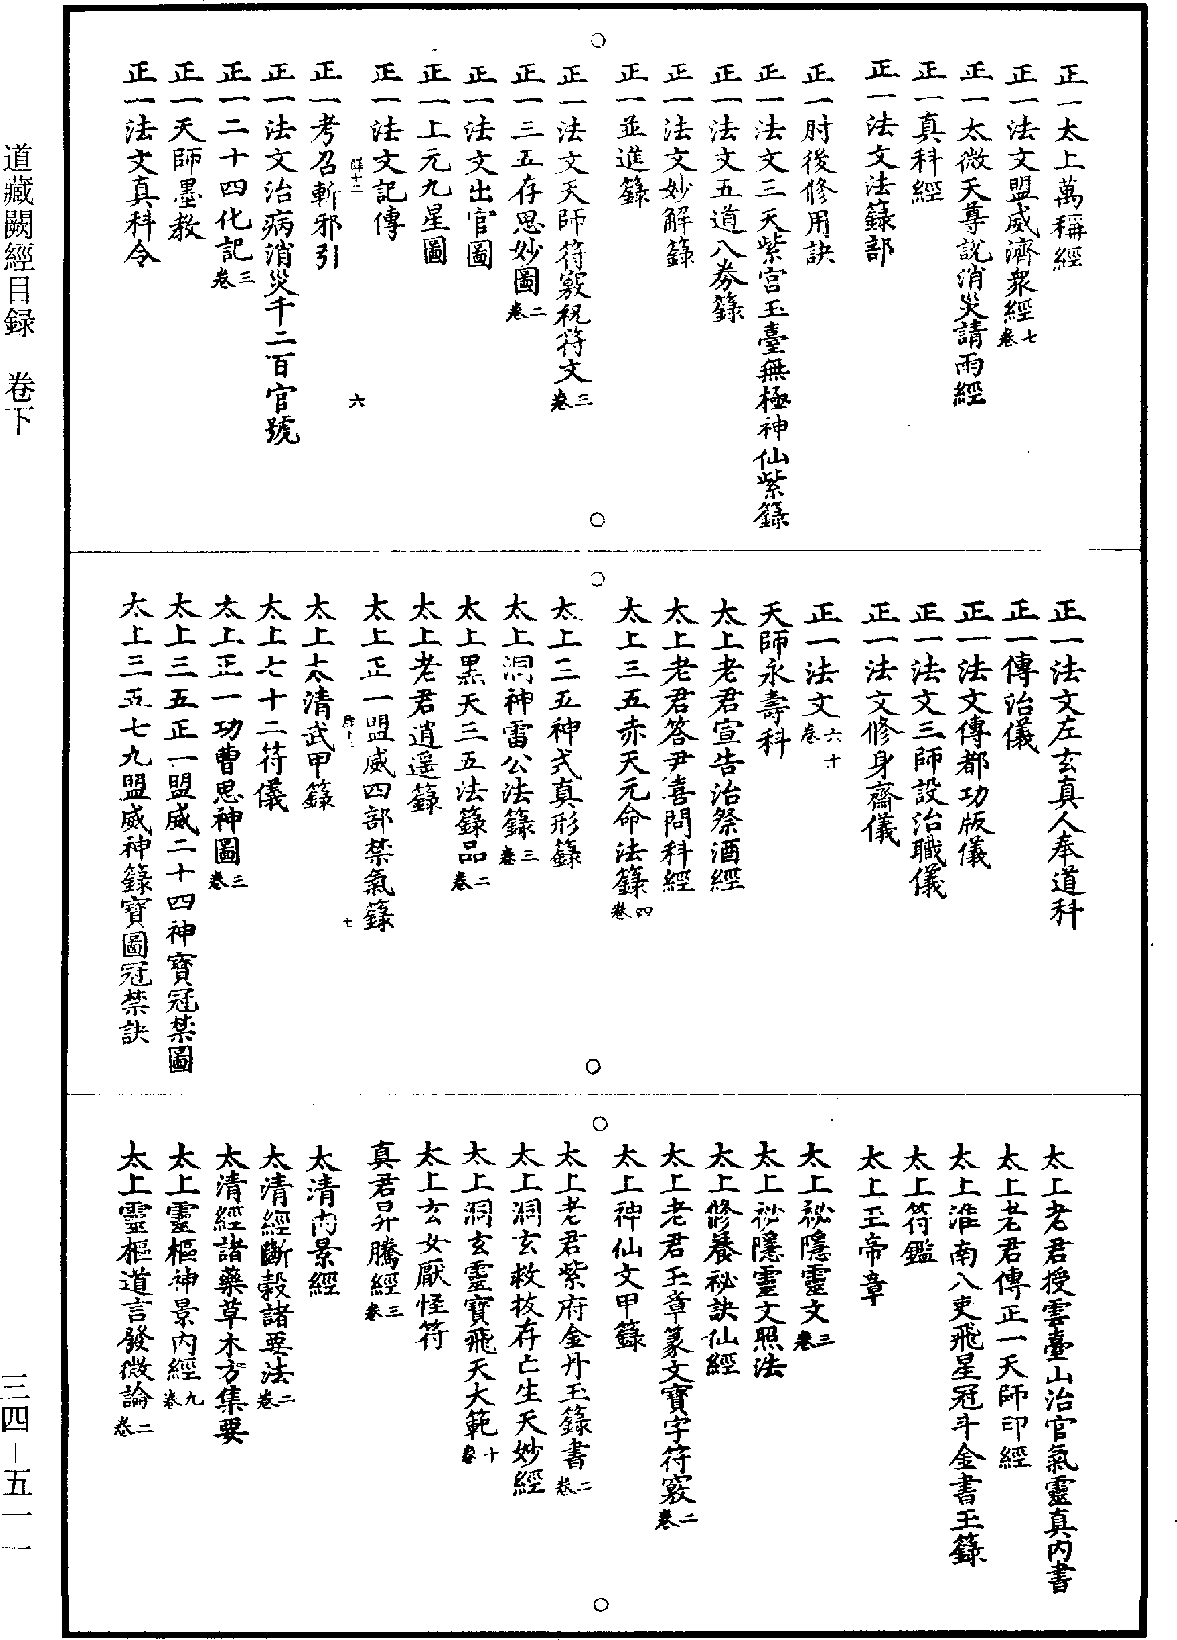 正一太上萬稱經
正一法文盟威濟衆經七卷
正一太微天尊說消災請雨經
正一真科經
正一法文法籙部
正一肘後修用訣
正一法文三天紫宮玉臺無極神仙紫籙
正一法文五道八券籙
正一法文妙解籙
正一並進籙
正一法文天師符竅祝符文三卷
正一三五存思妙圖二卷
正一法文出官圖
正一上元九星圖
正一法文記傳
六
正一考召斬邪引
正一法文治病消災千二百官號
正一二十四化記三卷
正一天師墨教
正一法文真科令
正一法文左玄真人奉道科
正一傳治儀
正一法文傳都功版儀
正一法文三師設治職儀
正一法文修身齋儀
正一法文六十卷
天師永壽科
太上老君宣告治祭酒經
太上老君答尹喜問科經
太上三五赤天元命法籙四卷
太上三五神式真形籙
太上洞神雷公法籙三卷
太上黑天三五法籙品二卷
太上老君逍遥籙
太上正一盟威四部禁氣籙
七
太上太清武甲籙
太上七十二符儀
太上正一功曹思神圖三卷
太上三五正一盟威二十四神寶冠禁圖
太上三五七九盟威神籙寶圖冠禁訣
太上老君授雲臺山治官氣靈真內書
太上老君傳正一天師印經
太上淮南八吏飛星冠斗金書玉籙
太上符鑑
太上玉帝章
太上祕隱靈文三卷
太上祕隱靈文照法
太上修養祕訣仙經
太上老君玉章篆文寶字符竅二卷
太上神仙文甲籙
太上老君紫府金丹玉籙書二卷
太上洞玄救拔存亡生天妙經
太上洞玄靈寶飛天大範十卷
太上玄女厭怪符
真君昇騰經三卷
太清內景經
太清經斷穀諸要法二卷
太清經諸藥草木方集要
太上靈樞神景內經九卷
太上靈樞道言發微論二卷
道藏闕經目録　卷下
三四—五一一